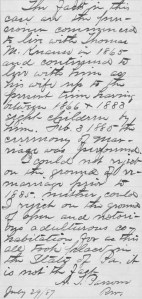 The facts in this
case are the pen-
sioner commenced
to live with Thomas
M. in 1865
and continued to
live with him as
his wife up to the
present time having
between 1866 & 1883
eight children by
him. Feb. 3, 1885 the
ceremony of mar-
riage was performed.
I could not reject
on the ground of re-
marriage prior to
1885. Neither could I
reject on the ground
of open and notori-
ous adulterous co-
habitation for as this
all took place in the
State of Pa. it
is not the fact.
July 29, 87